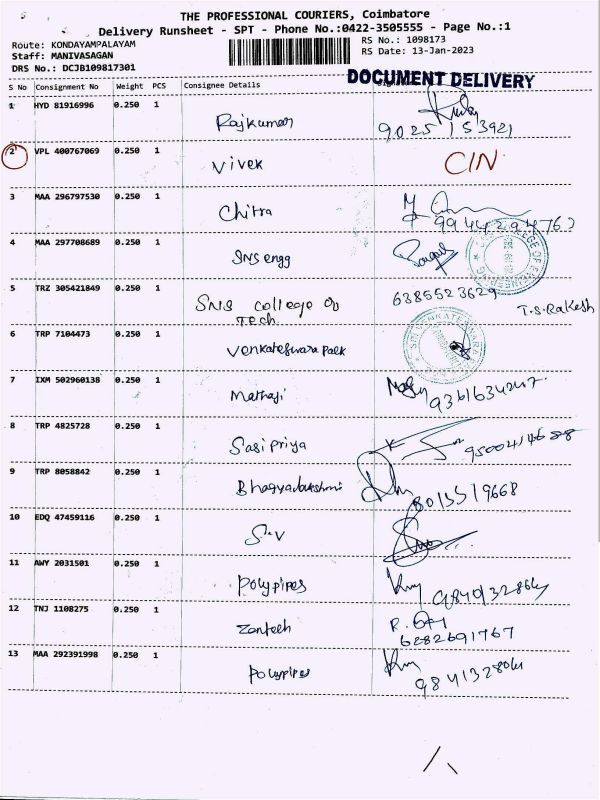 THE PROFESSIONAL COURIERS, Coimbatore
Delivery Runsheet - SPT - Phone No.:0422-3505555 - Page No.:1
Route: KONDAYAMPALAYAM
RS No.: 1098173
Staff: MANIVASAGAN
RS Date: 13-Jan-2023
DRS No.: DCJB109817301
DOCUMENT DELIVERY
S No Consignment No Weight PCS Consignee Details
1 HYD 81916996 0.250 1 Rajkumar 9025153921
2 VPL 400767069 0.250 1 Vivek CIN
3 MAA 296797530 0.250 1 Chitra
4 MAA 297708689 0.250 1 SNS engg
5 TRZ 305421849 0.250 1 SNS college of Tech. 6385523629 T.S.Rakesh
6 TRP 7104473 0.250 1 Venkateswara
7 IXM 502960138 0.250 1 Mathaji
8 TRP 4825728 0.250 1 Sasipriya
9 TRP 8058842 0.250 1
10 EDQ 47459116 0.250 1
11 AWY 2031501 0.250 1 Polypipes
12 TNJ 1108275 0.250 1 Zontech 6282691767
13 MAA 292391998 0.250 1 Polypipes